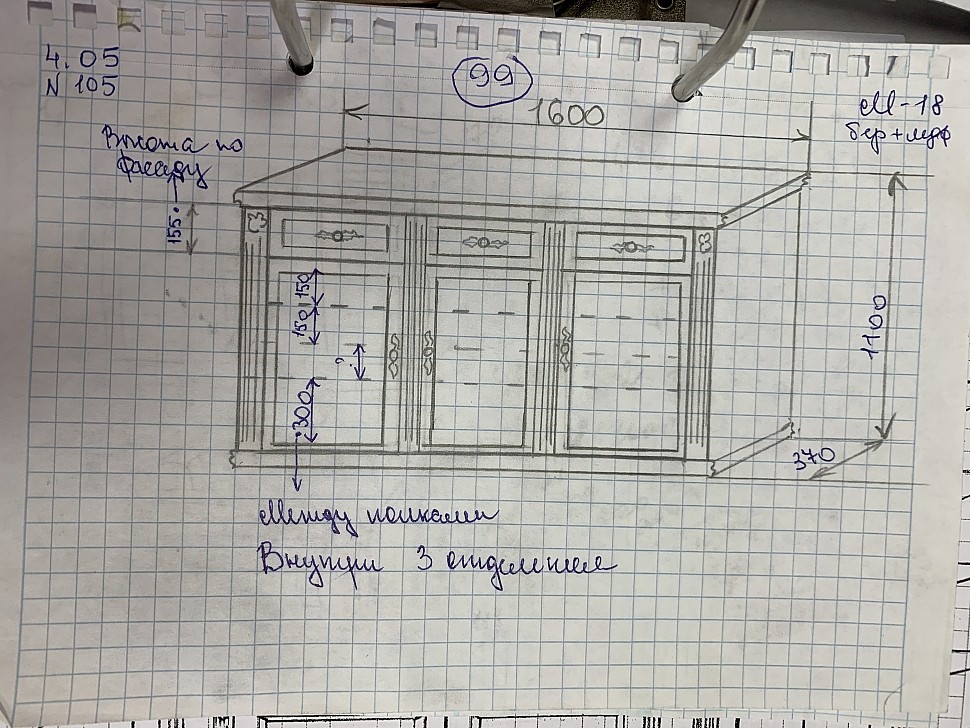 4.05
N 105
99
М-18
бер+мдф
1600
Высота по
фасаду
155
150
150
?
300
1100
370
Между полками
Внутри 3 отделения